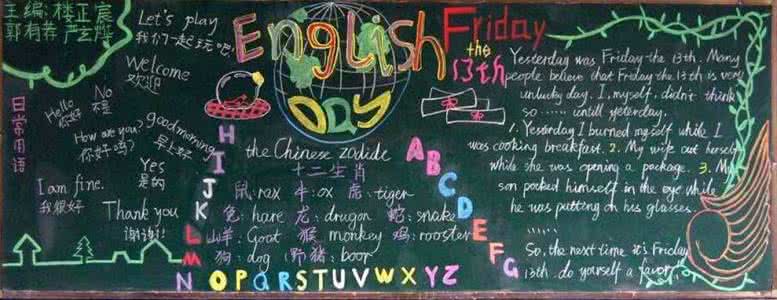 主编: 楼正宸
郭有 严
日常用语
Let's play
我们一起玩吧!
Welcome
欢迎
Hello
你好
No
不是
How are you?
你好吗?
good morning
早上好
Yes
是的
I am fine.
我很好
Thank you
谢谢!
English
DAY
the Chinese zodide
十二生肖
鼠: rax 牛: ox 虎: tiger
兔: hare 龙: drugon 蛇: snake
山羊: Goat 猴: monkey 鸡: rooster
狗: dog 野猪: boor
A B C D E F G
H I J K L M N
O P Q R S T U V W X Y Z
Friday
the
13th
Yesterday was Friday the 13th. Many
people believe that Friday the 13th is very
unlucky day. I, myself, didn't think
so ...... untill yesterday.
1. Yesterday I burned myself while I
was cooking breakfast. 2. My wife cut herself
while she was opening a package. 3. My
son pocked himself in the eye while
he was putting on his glasses.
......
So, the next time it's Friday
13th. do yourself a favor.